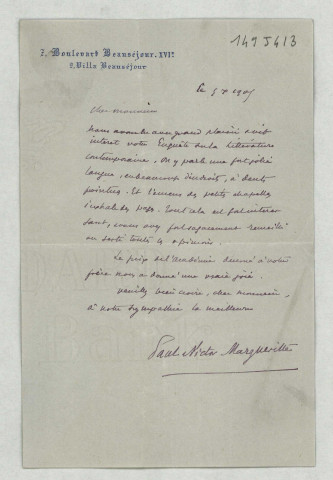 7, Boulevard Beauséjour. XVIe
2, Villa Beauséjour
1495413
Le 5 1905
Cher monsieur
Nous avons lu avec grand plaisir et vif
intérêt votre Enquête sur la littérature
contemporaine. On y parle une fort jolie
langue, en beaucoup d'endroits, à dents
pointues. Et l'encens des petites chapelles
s'exhale des pages. Tout cela est fort intéres-
sant, vous avez fort sagement recueilli
toutes opinions.
Le prix de l'Académie donné à votre
frère nous a donné une vraie joie.
Veuillez bien croire, cher monsieur,
à notre sympathie la meilleure
Paul Victor Margueritte